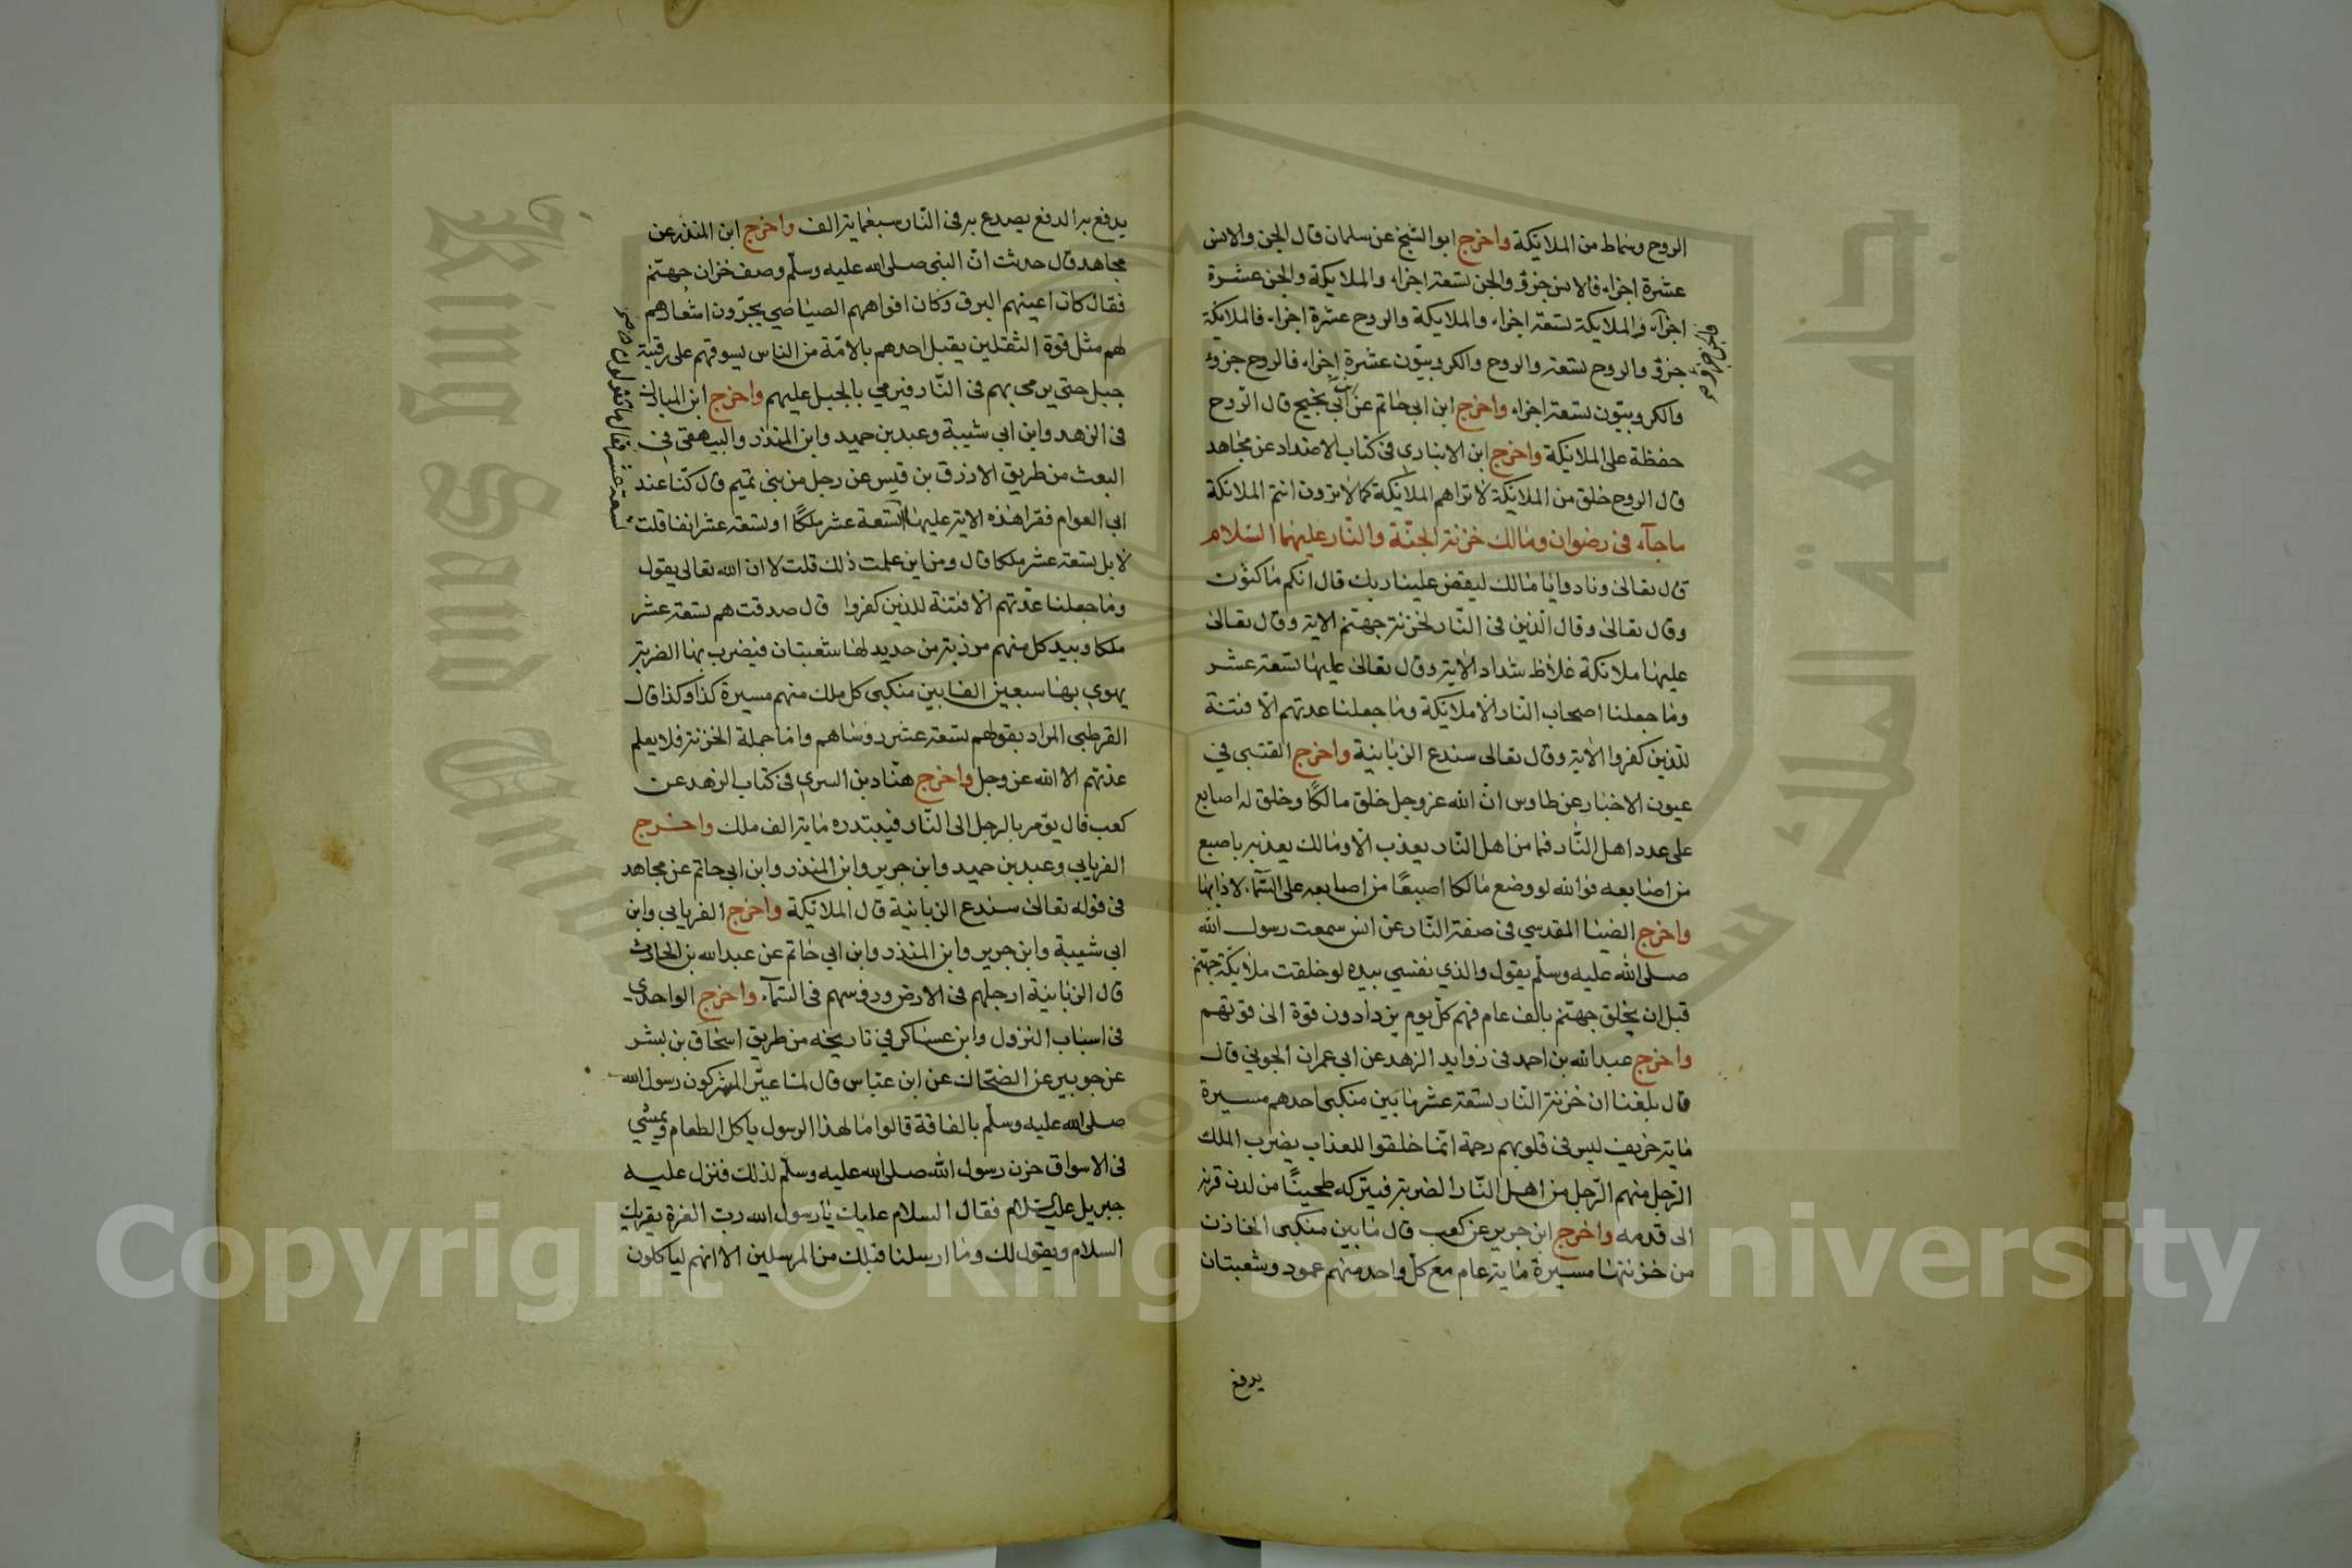 الروح وسماط من الملائكة واخرج ابو الشيخ عن سلمان قال الجن والانس
عشرة اجزاء فالانس جزؤ والجن تسعة اجزاء والملايكة والجن عشرة
اجزآء والملايكة تسعة اجزاء والملايكة والروح عشرة اجزاء فالملائكة
جزؤ والروح تسعة والروح والكروبيّون عشرة اجزاء فالروح جزؤ
والكروبيّون تسعة اجزاء واخرج ابن ابي حاتم عن ابي نجيح قال الرّوح
حفظة على الملائكة واخرج ابن الانباري في كتاب الاضداد عن مجاهد
قال الروح خلق من الملائكة لا تراهم الملائكة كما لا ترون انتم الملائكة
ما جآء في رضوان ومالك خزنة الجنّة والنّار عليهما السّلام
قال تعالى ونادوا يا مالك ليقض علينا ربك قال انكم ماكثون
وقال تعالى وقال الّذين في النّار لخزنة جهنّم الاية وقال تعالى
عليها ملائكة غلاظ شداد الاية وقال تعالى عليها تسعة عشر
وما جعلنا اصحاب النار الا ملائكة وما جعلنا عدتهم الا فتنة
للّذين كفروا الاية وقال تعالى سندع الزبانية واخرج القتبى في
عيون الاخبار عن طاوس انّ الله عز وجل خلق مالكًا وخلق له اصابع
على عدد اهل النّار فما من اهل النّار يعذب الّا ومالك يعذبه باصبع
من اصابعه فوالله لو وضع مالكا اصبعًا من اصابعه على السّمآء لاذابها
واخرج الضيا المقدسي في صفة النّار عن انس سمعت رسول الله
صلى الله عليه وسلّم يقول والذي نفسي بيده لو خلقت ملائكة جهنّم
قبل ان يخلق جهنّم بالف عام فهم كلّ يوم يزدادون قوة الى قوتهم
واخرج عبد الله بن احمد في زوايد الزهد عن ابي عمران الجوني قال
قال بلغنا ان خزنة النّار تسعة عشر ما بين منكبى احدهم مسيرة
ماية خريف ليس في قلوبهم رحمة انّما خلقوا للعذاب يضرب الملك
الرّجل منهم الرّجل من اهل النّار الضربة فيتركه طحينًا من لدن قرنه
الى قدمه واخرج ابن جرير عن كعب قال ما بين منكبى الخازن
من خزنتها مسيرة ماية عام مع كلّ واحد منهم عمود وشعبتان
يدفع
يدفع به الدفع يصدع به في النّار سبعماية الف واخرج ابن المنذر عن
مجاهد قال حدثت انّ النبى صلى الله عليه وسلّم وصف خزان جهنّم
فقال كان اعينهم البرق وكان افواههم الصياصي يجرّون اشعارهم
لهم مثل قوة الثقلين يقبل احدهم بالامّة من الناس يسوقهم على رقبته
جبل حتي يرمى بهم في النّار فيرمي بالجبل عليهم واخرج ابن المبارك
في الزهد وابن ابى شيبة وعبد بن حميد وابن المنذر والبيهقى في
البعث من طريق الازرق بن قيس عن رجل من بنى تميم قال كنّا عند
ابي العوام فقرا هذه الاية عليها تسعة عشر ملكًا او تسعة عشر الفا قلت
لا بل تسعة عشر ملكا قال ومن اين علمت ذلك قلت لا ان الله تعالى يقول
وما جعلنا عدّتهم الا فتنة للذين كفروا قال صدقت هم تسعة عشر
ملكا وبيد كل منهم مرزبة من حديد لها شعبتان فيضرب بها الضربة
يهوي بها سبعين الفا بين منكبى كل ملك منهم مسيرة كذا وكذا قال
القرطبى المراد بقولهم تسعة عشر روساهم واما جملة الخزنة فلا يعلم
عدتهم الا الله عز وجل واخرج هنّاد بن السري في كتاب الزهد عن
كعب قال يؤمر بالرجل الى النّار فيبتدره ماية الف ملك واخرج
الفريابي وعبد بن حميد وابن جرير وابن المنذر وابن ابي حاتم عن مجاهد
في قوله تعالى سندع الزبانية قال الملائكة واخرج الفريابي وابن
ابي شيبة وابن جرير وابن المنذر وابن ابي حاتم عن عبد الله بن الحارث
قال الزبانية ارجلهم في الارض وروسهم في السّمآء واخرج الواحدي
في اسباب النزول وابن عساكر في تاريخه من طريق اسحاق بن بشر
عن جويبر عن الضحّاك عن ابن عبّاس قال لما عيّر المشركون رسول الله
صلى الله عليه وسلّم بالفاقة قالوا ما لهذا الرسول ياكل الطعام ويمشي
في الاسواق حزن رسول الله صلى الله عليه وسلّم لذلك فنزل عليه
جبريل عليه السّلام فقال السلام عليك يا رسول الله ربّ العزة يقريك
السلام ويقول لك وما ارسلنا قبلك من المرسلين الا انهم لياكلون
تسعة عشر فقال ما تقولون
King Saud University
جامعة الملك سعود
Copyright © King Saud University